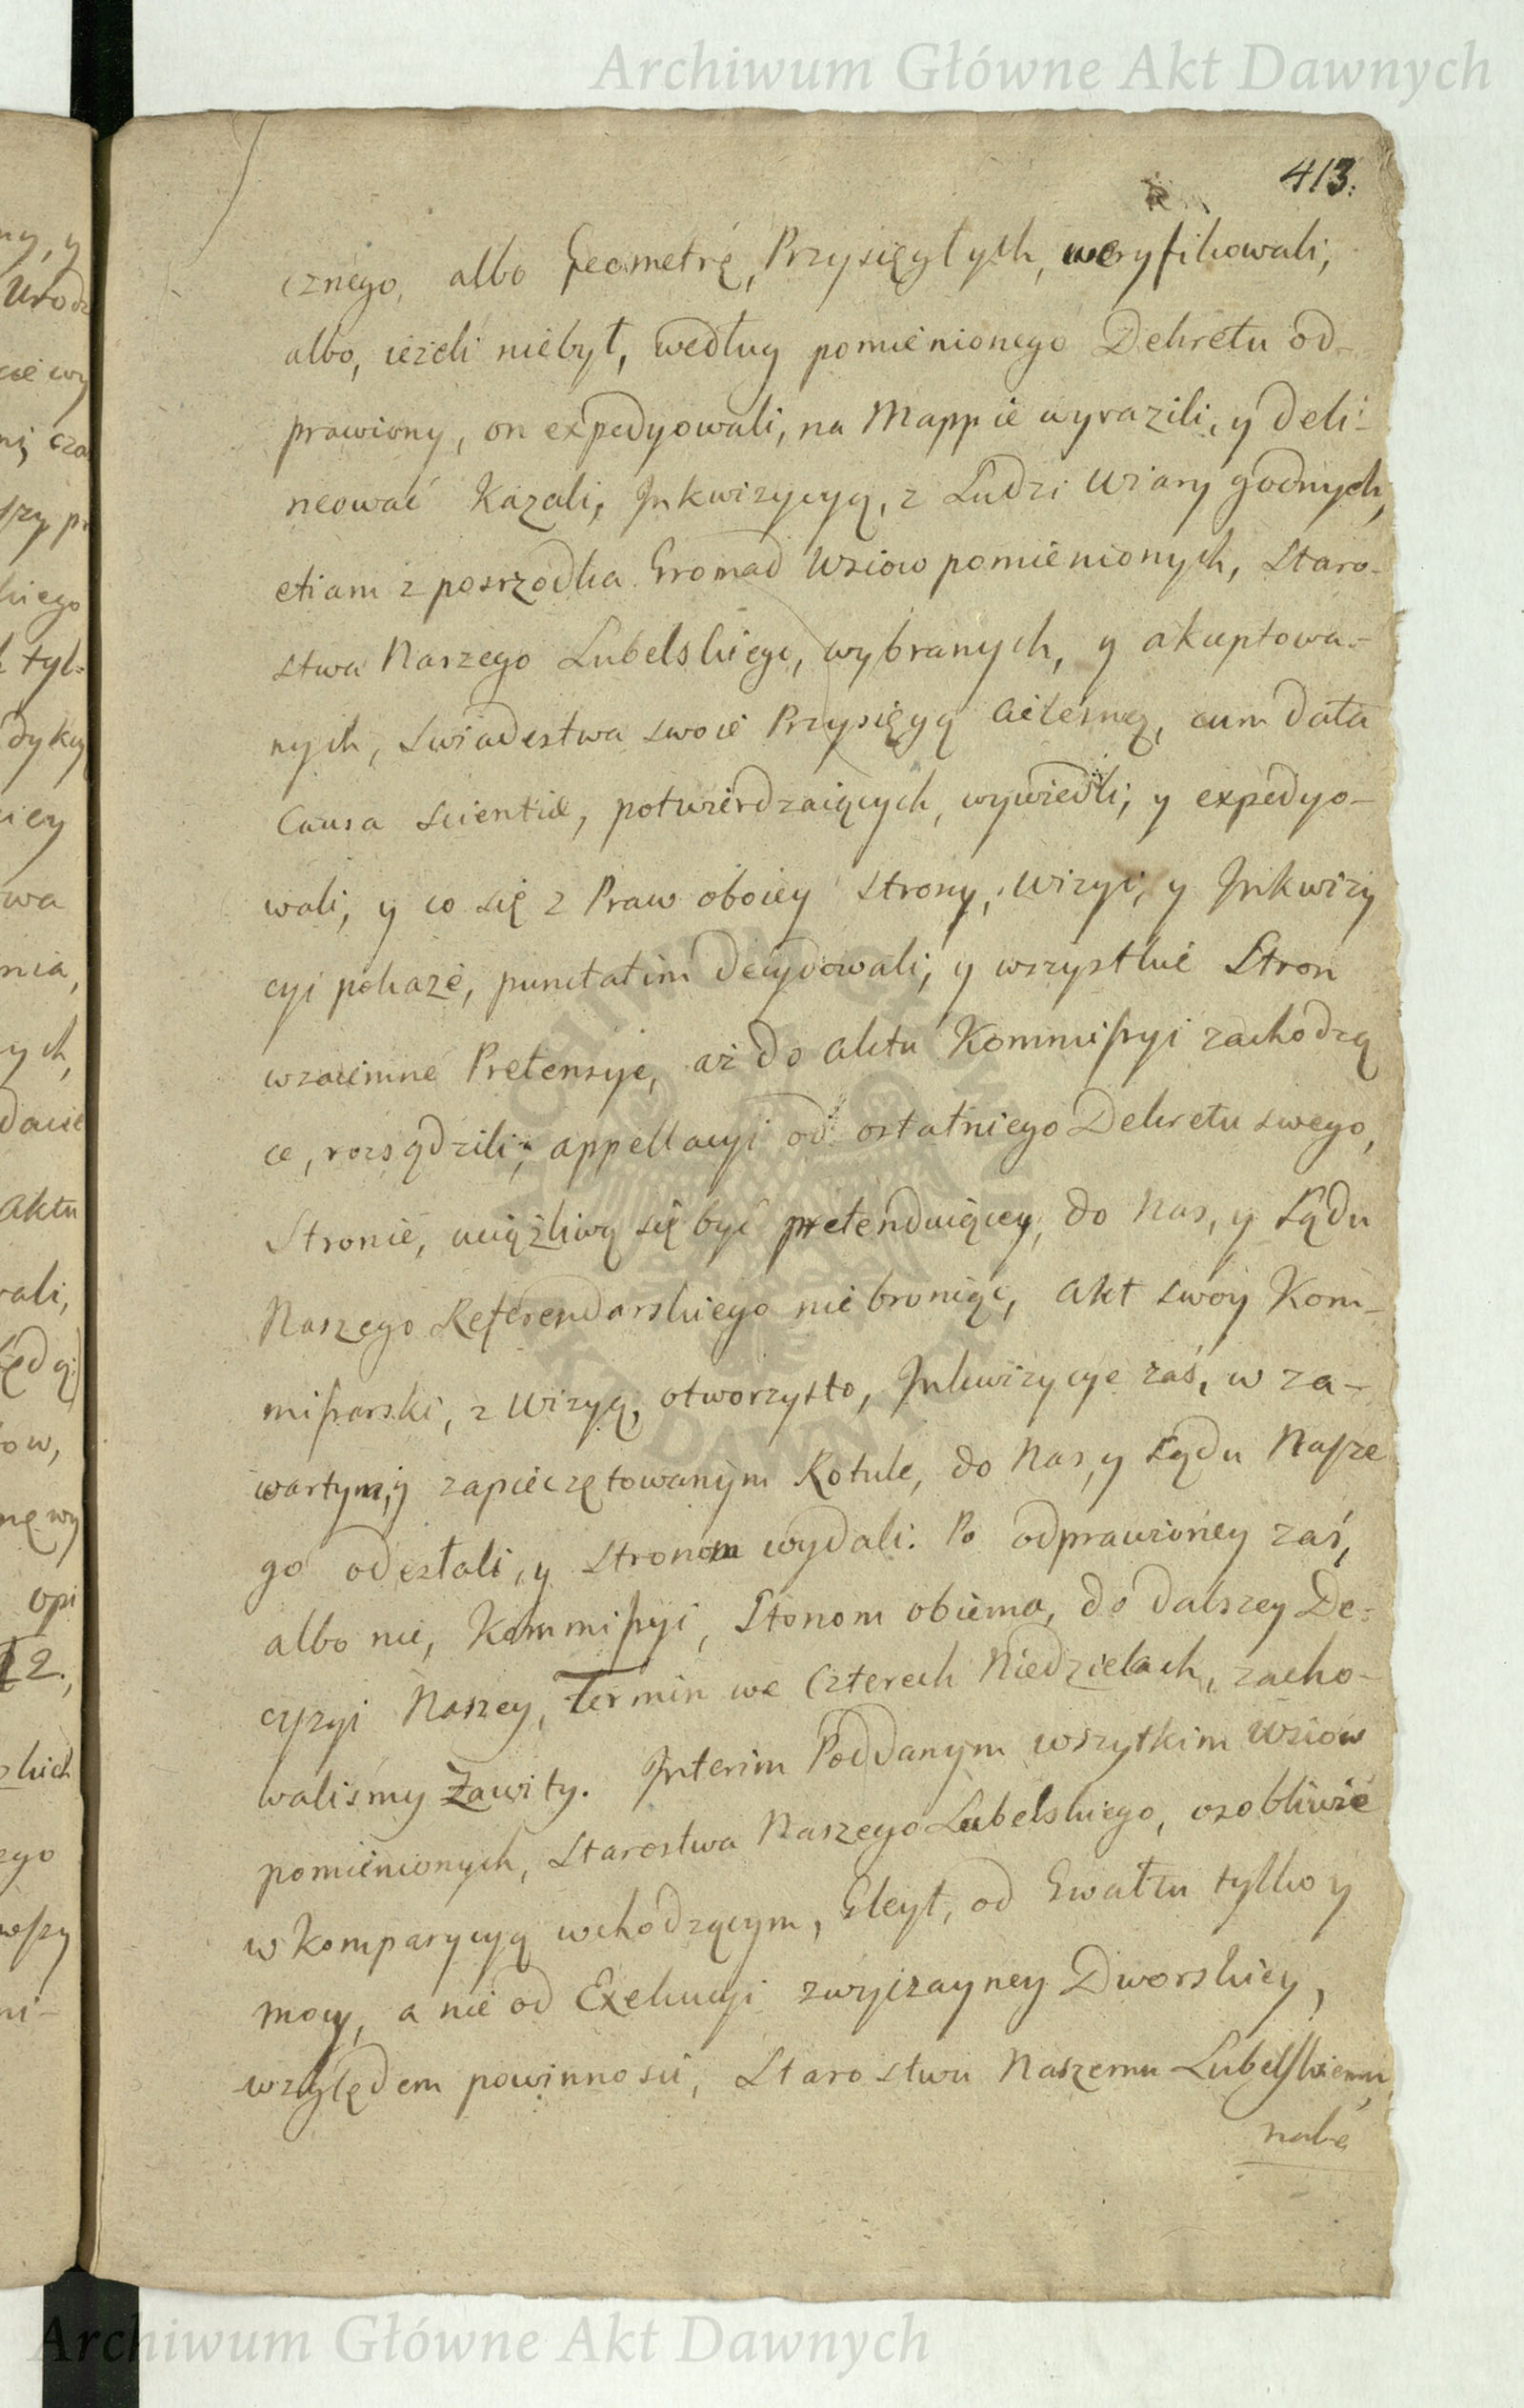 Archiwum Główne Akt Dawnych
413.
cznego, albo Geometrę, Przysięgłych, weryfikowali,
albo, ieżeli niebył, według pomienionego Dekretu od-
prawiony, on expedyowali, na Mappie wyrazili, y deli-
neować Kazali, Inkwizycyą, z Ludzi Wiary godnych,
etiam z posrzodka Gromad Wsiow pomienionych, Staro-
stwa Naszego Lubelskiego, wybranych, y akuptowa-
nych, swiadestwa swoie Przysięgą Cielesną, cum data
Causa scientiæ, potwierdzaiących, wywiedli, y expedyo-
wali, y co się z Praw oboiey strony, Wizyi, y Inkwizy
cyi pokaże, punctatim decydowali, y wszystkie Stron
wzaiemne Pretensye, aż do aktu Kommissyi zachodzą
ce, rozsądzili, appellacyi od ostatniego Dekretu swego,
Stronie, uciążliwą się być pretenduiącey, do Nas, y Sądu
Naszego Referendarskiego niebroniąc, Akt swoy Kom-
missarski, z Wizyą, otworzysto, Inkwizycye zaś, w za-
wartym, y zapieczętowanym Rotule, do Nas, y Sądu Nasze
go odesłali, y Stronom wydali. Po odprawioney zaś,
albo nie, Kommissyi, Stonom obiema, do dalszey De-
cyzyi Naszey, Termin we Czterech Niedzielach, zacho-
waliśmy Zawity. Interim Poddanym wszytkim Wsiow
pomienionych, Starostwa Naszego Lubelskiego, osobliwie
w Komparycyą wchodzącym, Gleyt, od Gwałtu tylko y
mocy, a nie od Exekucyi zwyczayney Dworskiey,
względem powinnosci, Starostwu Naszemu Lubelskiemu,
nale
Archiwum Główne Akt Dawnych